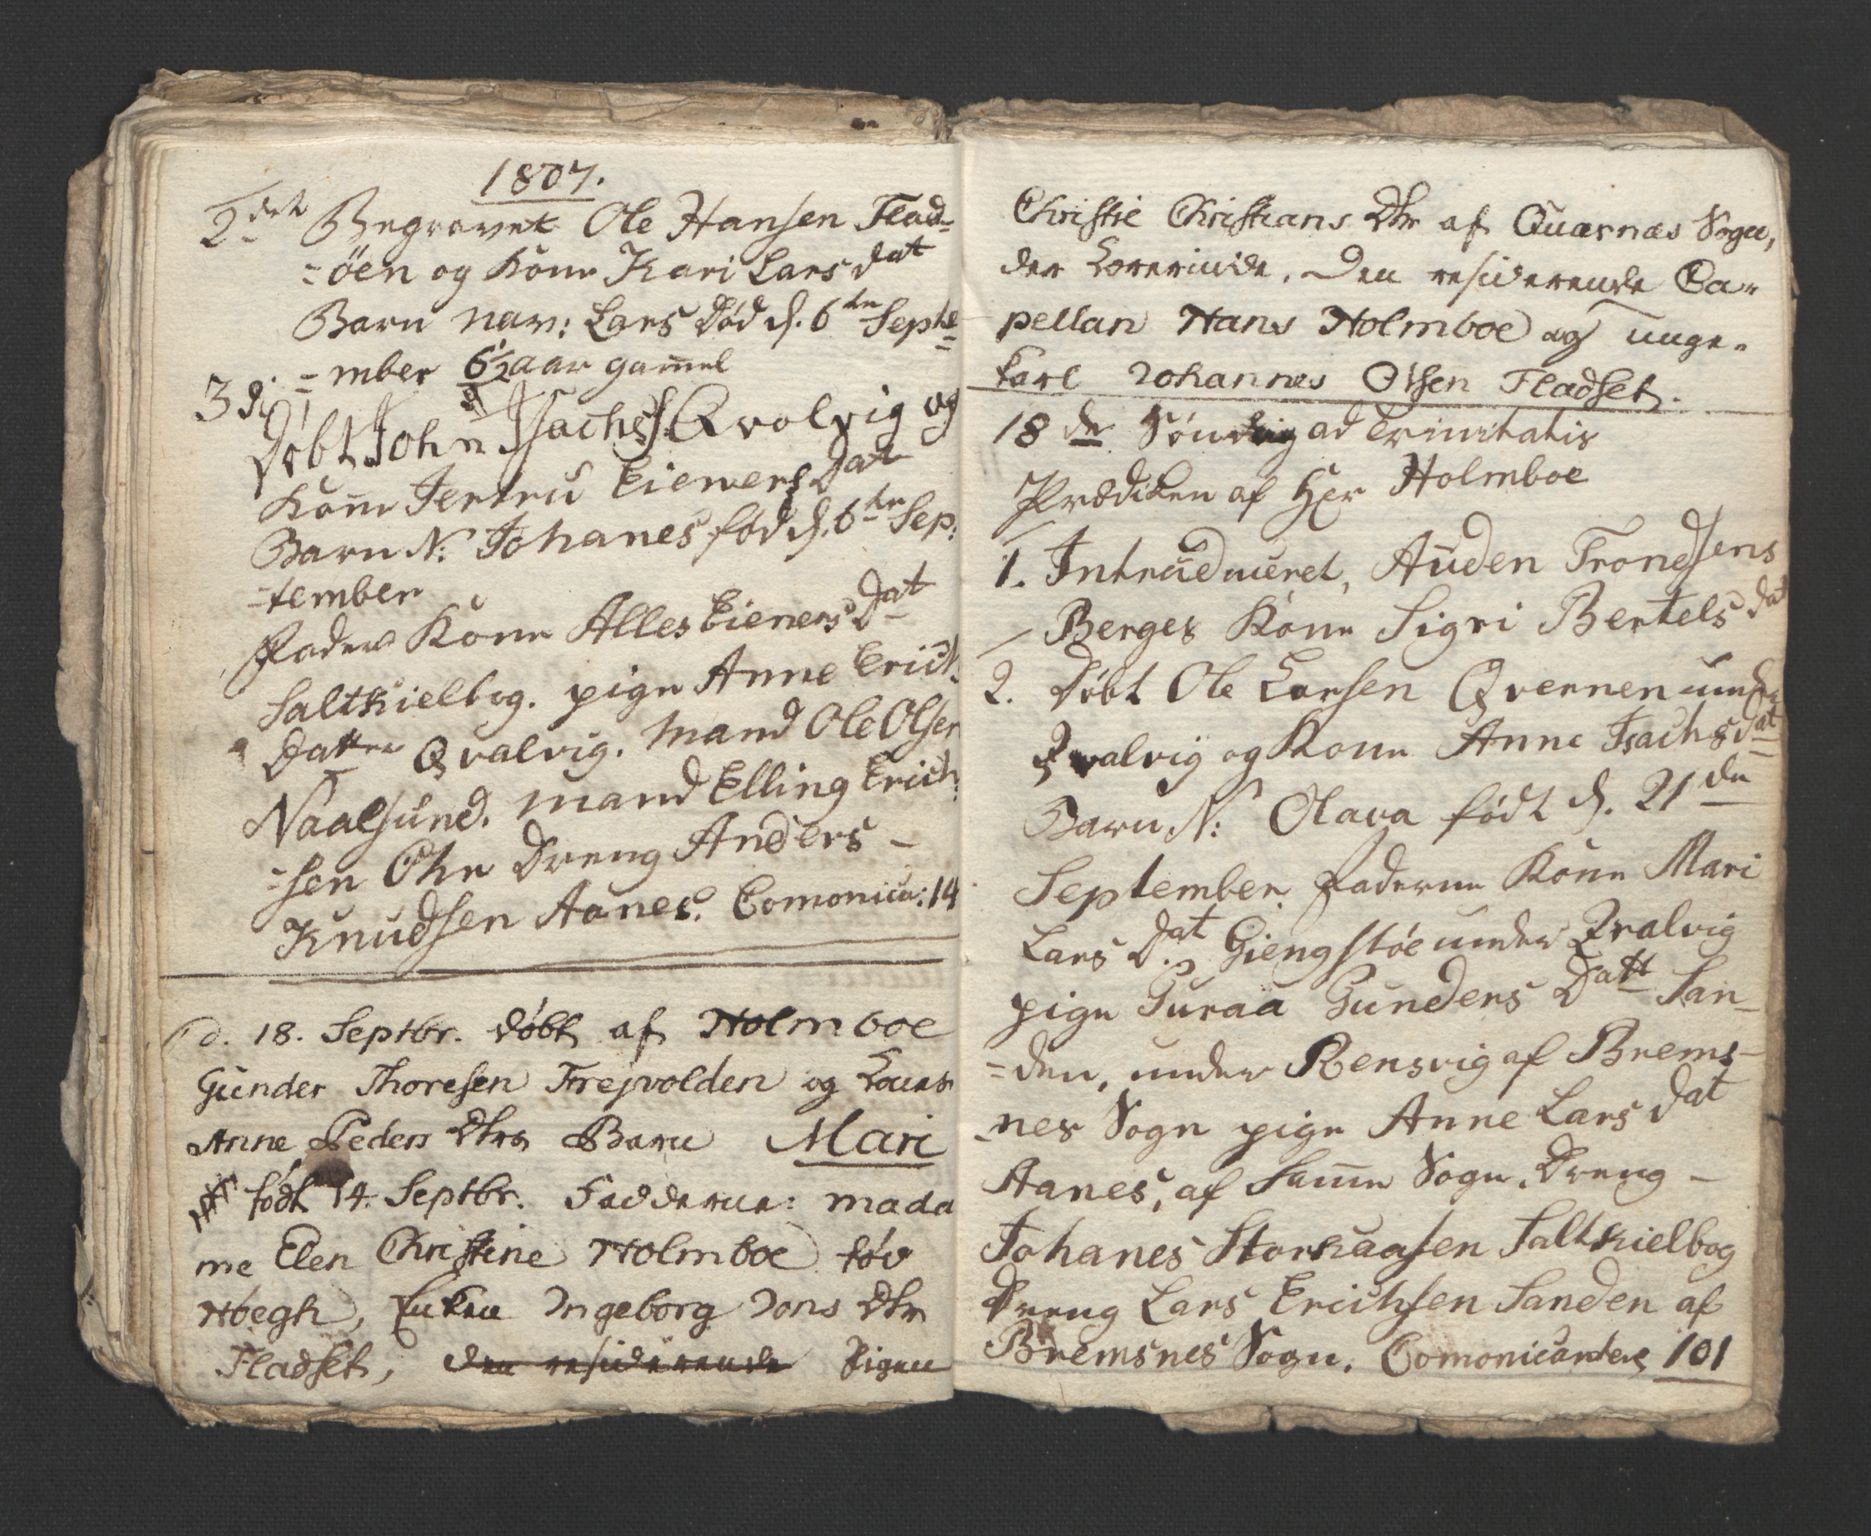 1807.
2det Begravet Ole Hansen Flad-
=öen og Kone Kari Larsdat
Barn nav: Lars død d. 6te Septe
=mber 6½ aar gam̄el
3di Døbt John Isachs: Qvolvig og
Kon̄e Jertru Eieners Dat
Barn N: Johanes fød d. 6te Sep:
=tember
Fadere Kone Alles Eieners Dat
Saltkielbog. pige Anne Erich
Datter Qvalvig. Mand Ole Olsen
Naalsund. Mand Elling Erich:
=sen Ohr Dreng Anders -
Knudsen Aanes. Comonicu: 14
d. 18. Septbr. døbt af Holmboe
Gunder Thoresen Frejvolden og
Anne Peders Dtrs Barn Mari
født 14. Septbr. Fadderne: mada
me Elen Christine Holmboe føv
Høegh, Enken Ingeborg Jons Dtr
Fladset, den residerende Pigen
Christie Christians Dtr af Quarnæs Sogn,
der Loverinde. Den residerende Ca-
pellan Hans Holmboe og unge-
karl Johannes Olsen Fladset.
18de Søndag ad Trinitatis
Prædiken af Her Holmboe
1. Intruduceret, Auden Trondsens
Berges Kone Sigri Bertels dat
2. Døbt Ole Larsen Qvernen under
Qvalvig og Kone Anne Isachs dat
Barn N: Olava født d. 21de
September. Faderne Kone Mari
Lars Dat. Giengstøe under Qvalvig
pige Guraa Gunders Datt San-
=den, under Rensvig af Brems-
nes Sogn pige Anne Lars dat
Aanes, af Sam̄e Sogn. Dreng -
Johanes Storkaasen Saltkielbog
Dreng Lars Erichsen Sanden af
Bremsnes Sogn. Comonicanters 101